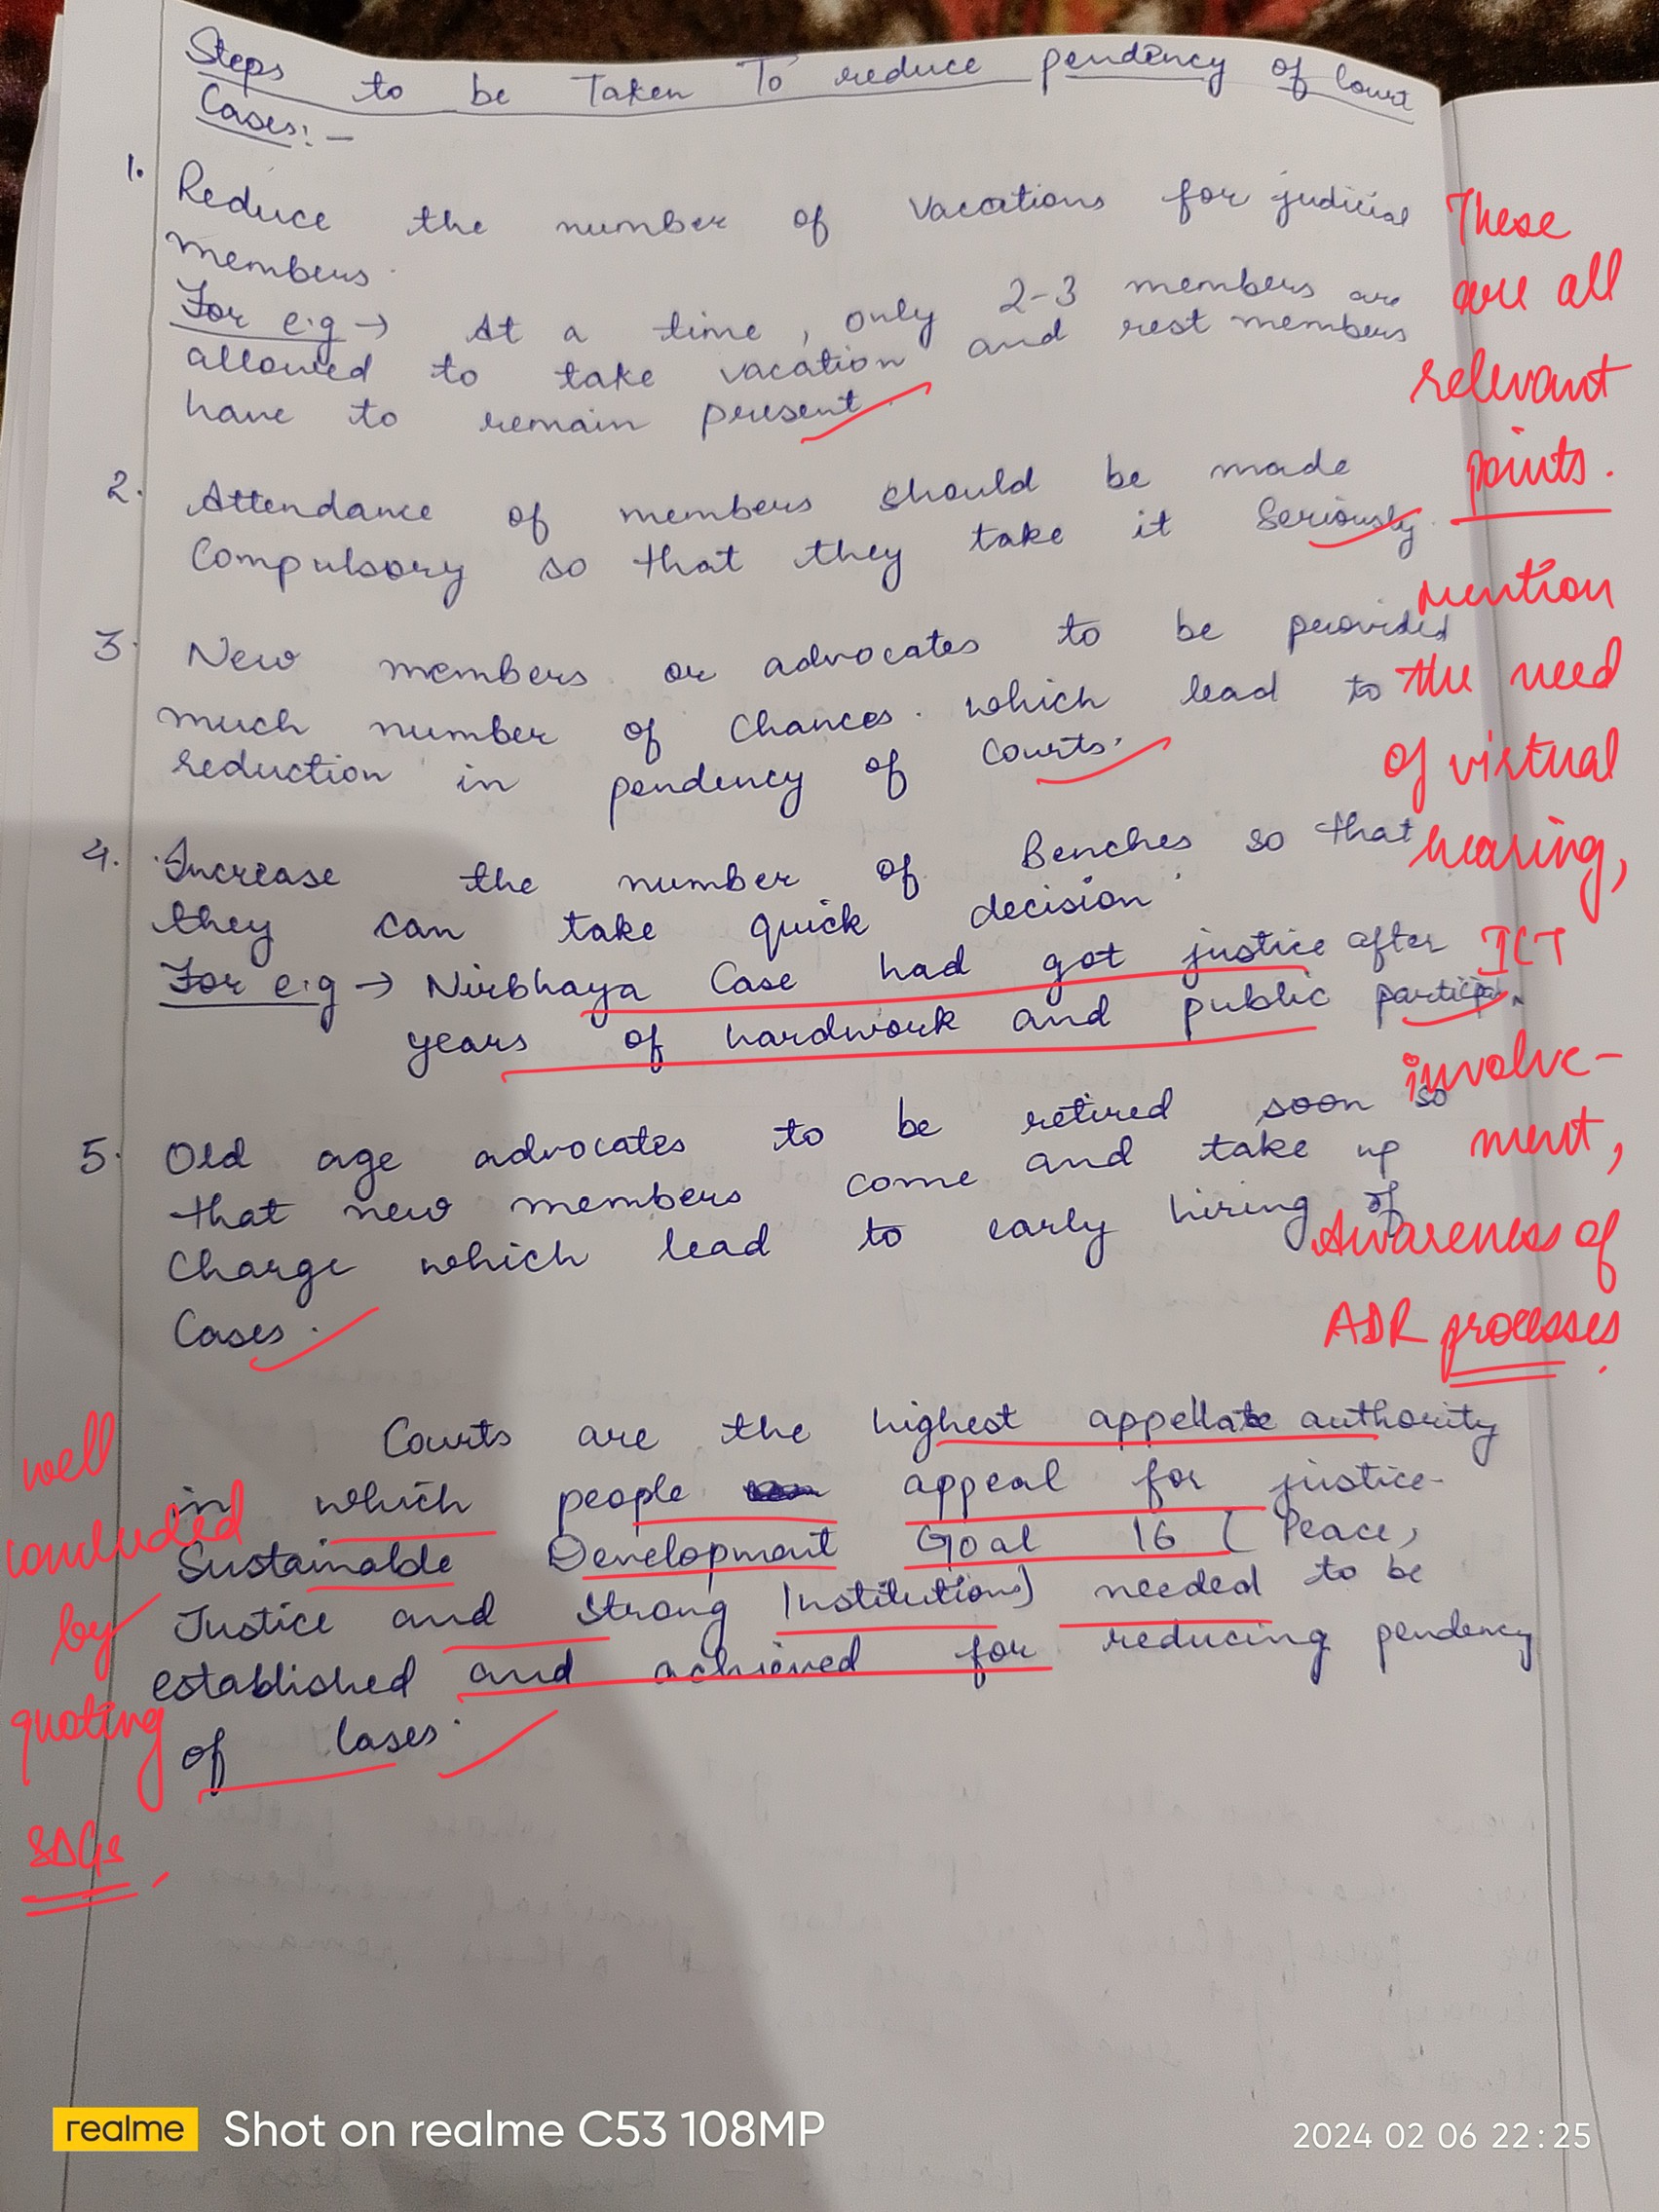 Steps to be Taken To reduce pendency of Court
Cases:-
1. Reduce the number of Vacations for judicial
members.
For e.g → At a time, only 2-3 members are
allowed to take vacation and rest members
have to remain present.
2. Attendance of members should be made
Compulsory so that they take it Seriously.
3. New members or advocates to be provided
much number of Chances. which lead to
reduction in pendency of Courts.
4. Increase the number of Benches so that
they can take quick decision.
For e.g → Nirbhaya Case had got justice after
years of hardwork and public
5. Old age advocates to be retired soon so
that new members come and take up
Charge which lead to early hiring of
Cases.
Courts are the highest appellate authority
in which people appeal for justice.
Sustainable Development Goal 16 (Peace,
Justice and Strong Institutions) needed to be
established and achieved for reducing pendency
of Cases.
These
are all
relevant
points.
mention
the need
of virtual
hearing,
ICT
involve-
ment,
Awareness of
ADR processes.
well
concluded
by
quoting
SDGs.
realme Shot on realme C53 108MP
2024 02 06 22:25